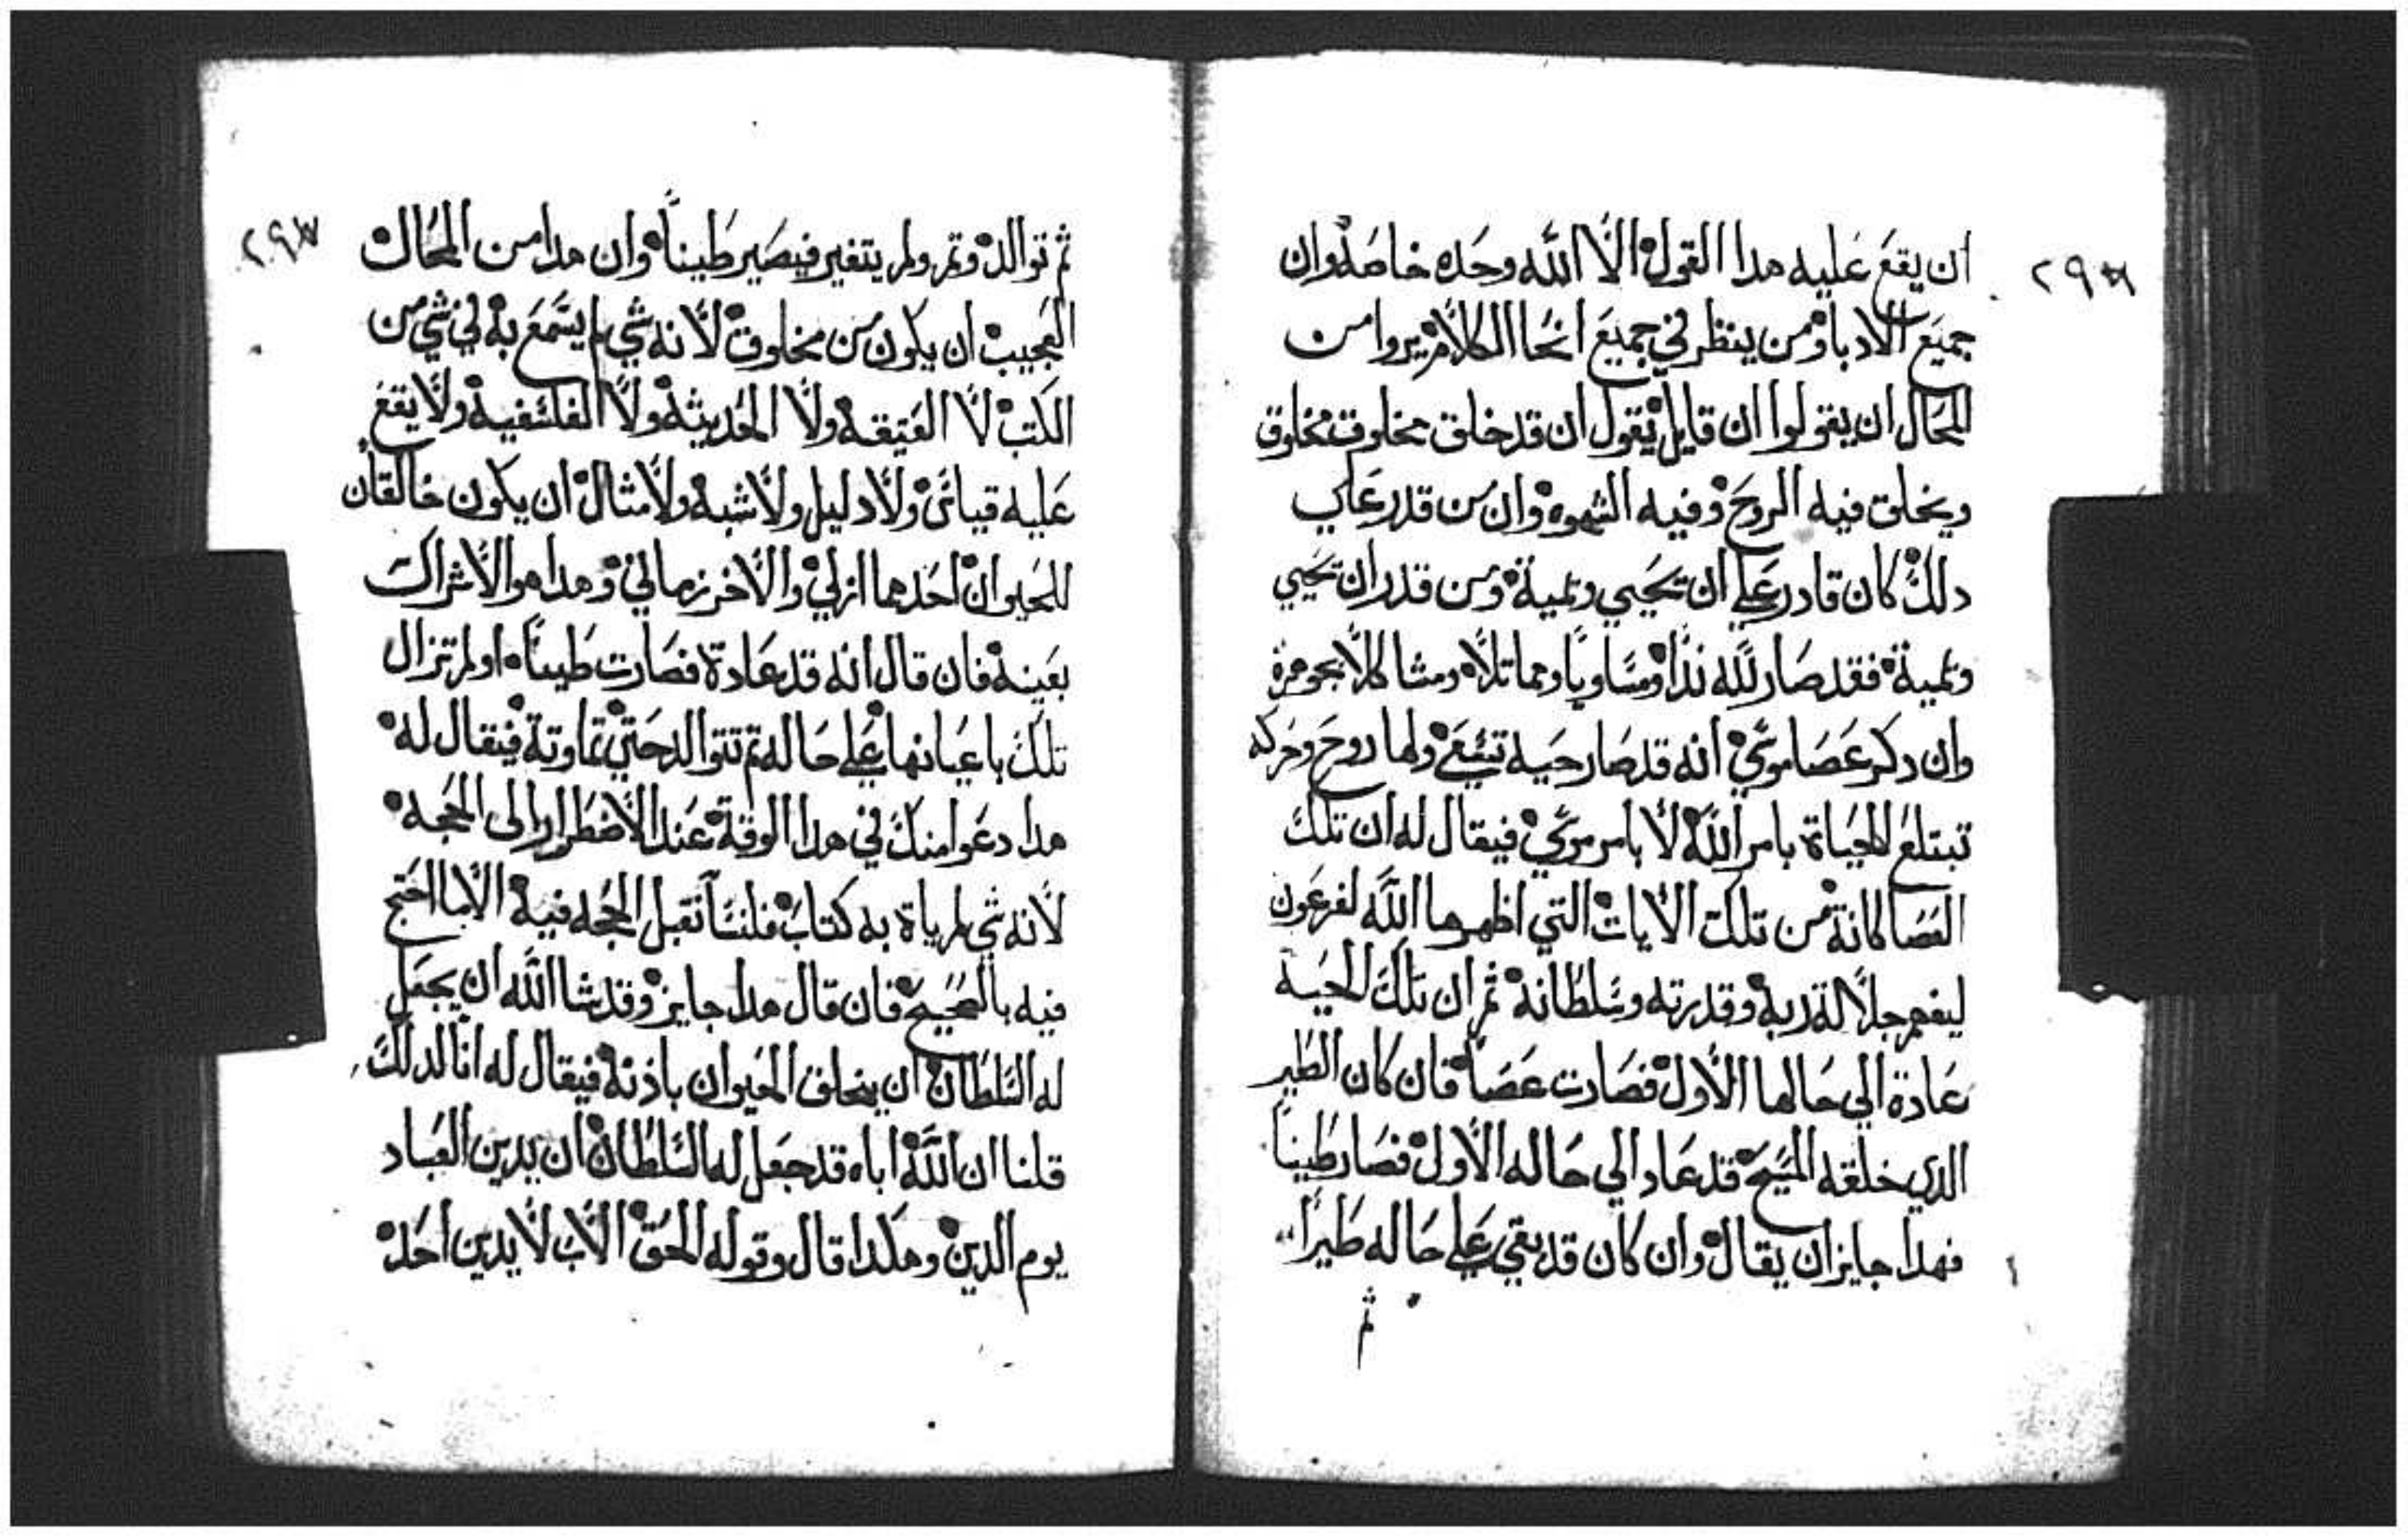 ٢٩٢
ان يقع عليه هدا القول الّا اللّه وحده خاصه وان
جميع الادبا ومن ينظر في جميع انحا الكلام يروا من
المحال ان يقولوا ان قايل يقول ان قد خلق مخلوق مخلوق
ويخلق فيه الروح وفيه الشهوه وان من قدر علي
دلك كان قادر علي ان تحيي وتميتة ومن قدر ان تحيي
وتميتة فقد صار للّه ندًا ومساويًا ومماتلًا ومشاكلًا بجوهره
وان دكر عصا موسي انه قد صار حيه تسعي ولها روح وحركه
تبتلع الحياة بامر اللّه لا بامر موسي فيقال له ان تلك
العصا كانة من تلك الايات التي اظهرها اللّه لفرعون
ليفهم جلالة ربه وقدرته وسلطانه ثم ان تلك الحيه
عادة الي حالها الاول فصارت عصا فان كان الطير
الدي خلقه المسيح قد عاد الي حاله الاول فصار طينًا
فهدا جايز ان يقال وان كان قد بقي علي حاله طيرًا
ثم
٢٩٣
ثم توالد وتم ولم يتغير فيصير طينًا وان هدا من المحال
العجيب ان يكون من مخلوق لانه شي لم يسمع به في شي من
الكتب لا العتيقه ولا الحديثه ولا الفلسفيه ولا يقع
عليه قياس ولا دليل ولا شبه ولا مثال ان يكون خالقان
للحيوان احدهما ازلي والاخر زماني وهدا هو الاشراك
بعينه فان قال انه قد عادة فصارت طينًا او لم تزال
تلك باعيانها علي حاله تم تتوالد حتي تماوتة فيقال له
هدا دعوا منك في هدا الوقة عند الاضطرار الى الحجه
لانه شي لم ياة به كتاب فلسنا نقبل الحجه فيه الا بما احتج
فيه بالصحيح فان قال هدا جايز وقد شا اللّه ان يجعل
له السلطان ان يخلق الحيوان باذنه فيقال له انا لدلك
قلنا ان اللّه اباه قد جعل له السلطان ان يدين العباد
يوم الدين وهكدا قال وقوله الحق الاب لا يدين احد